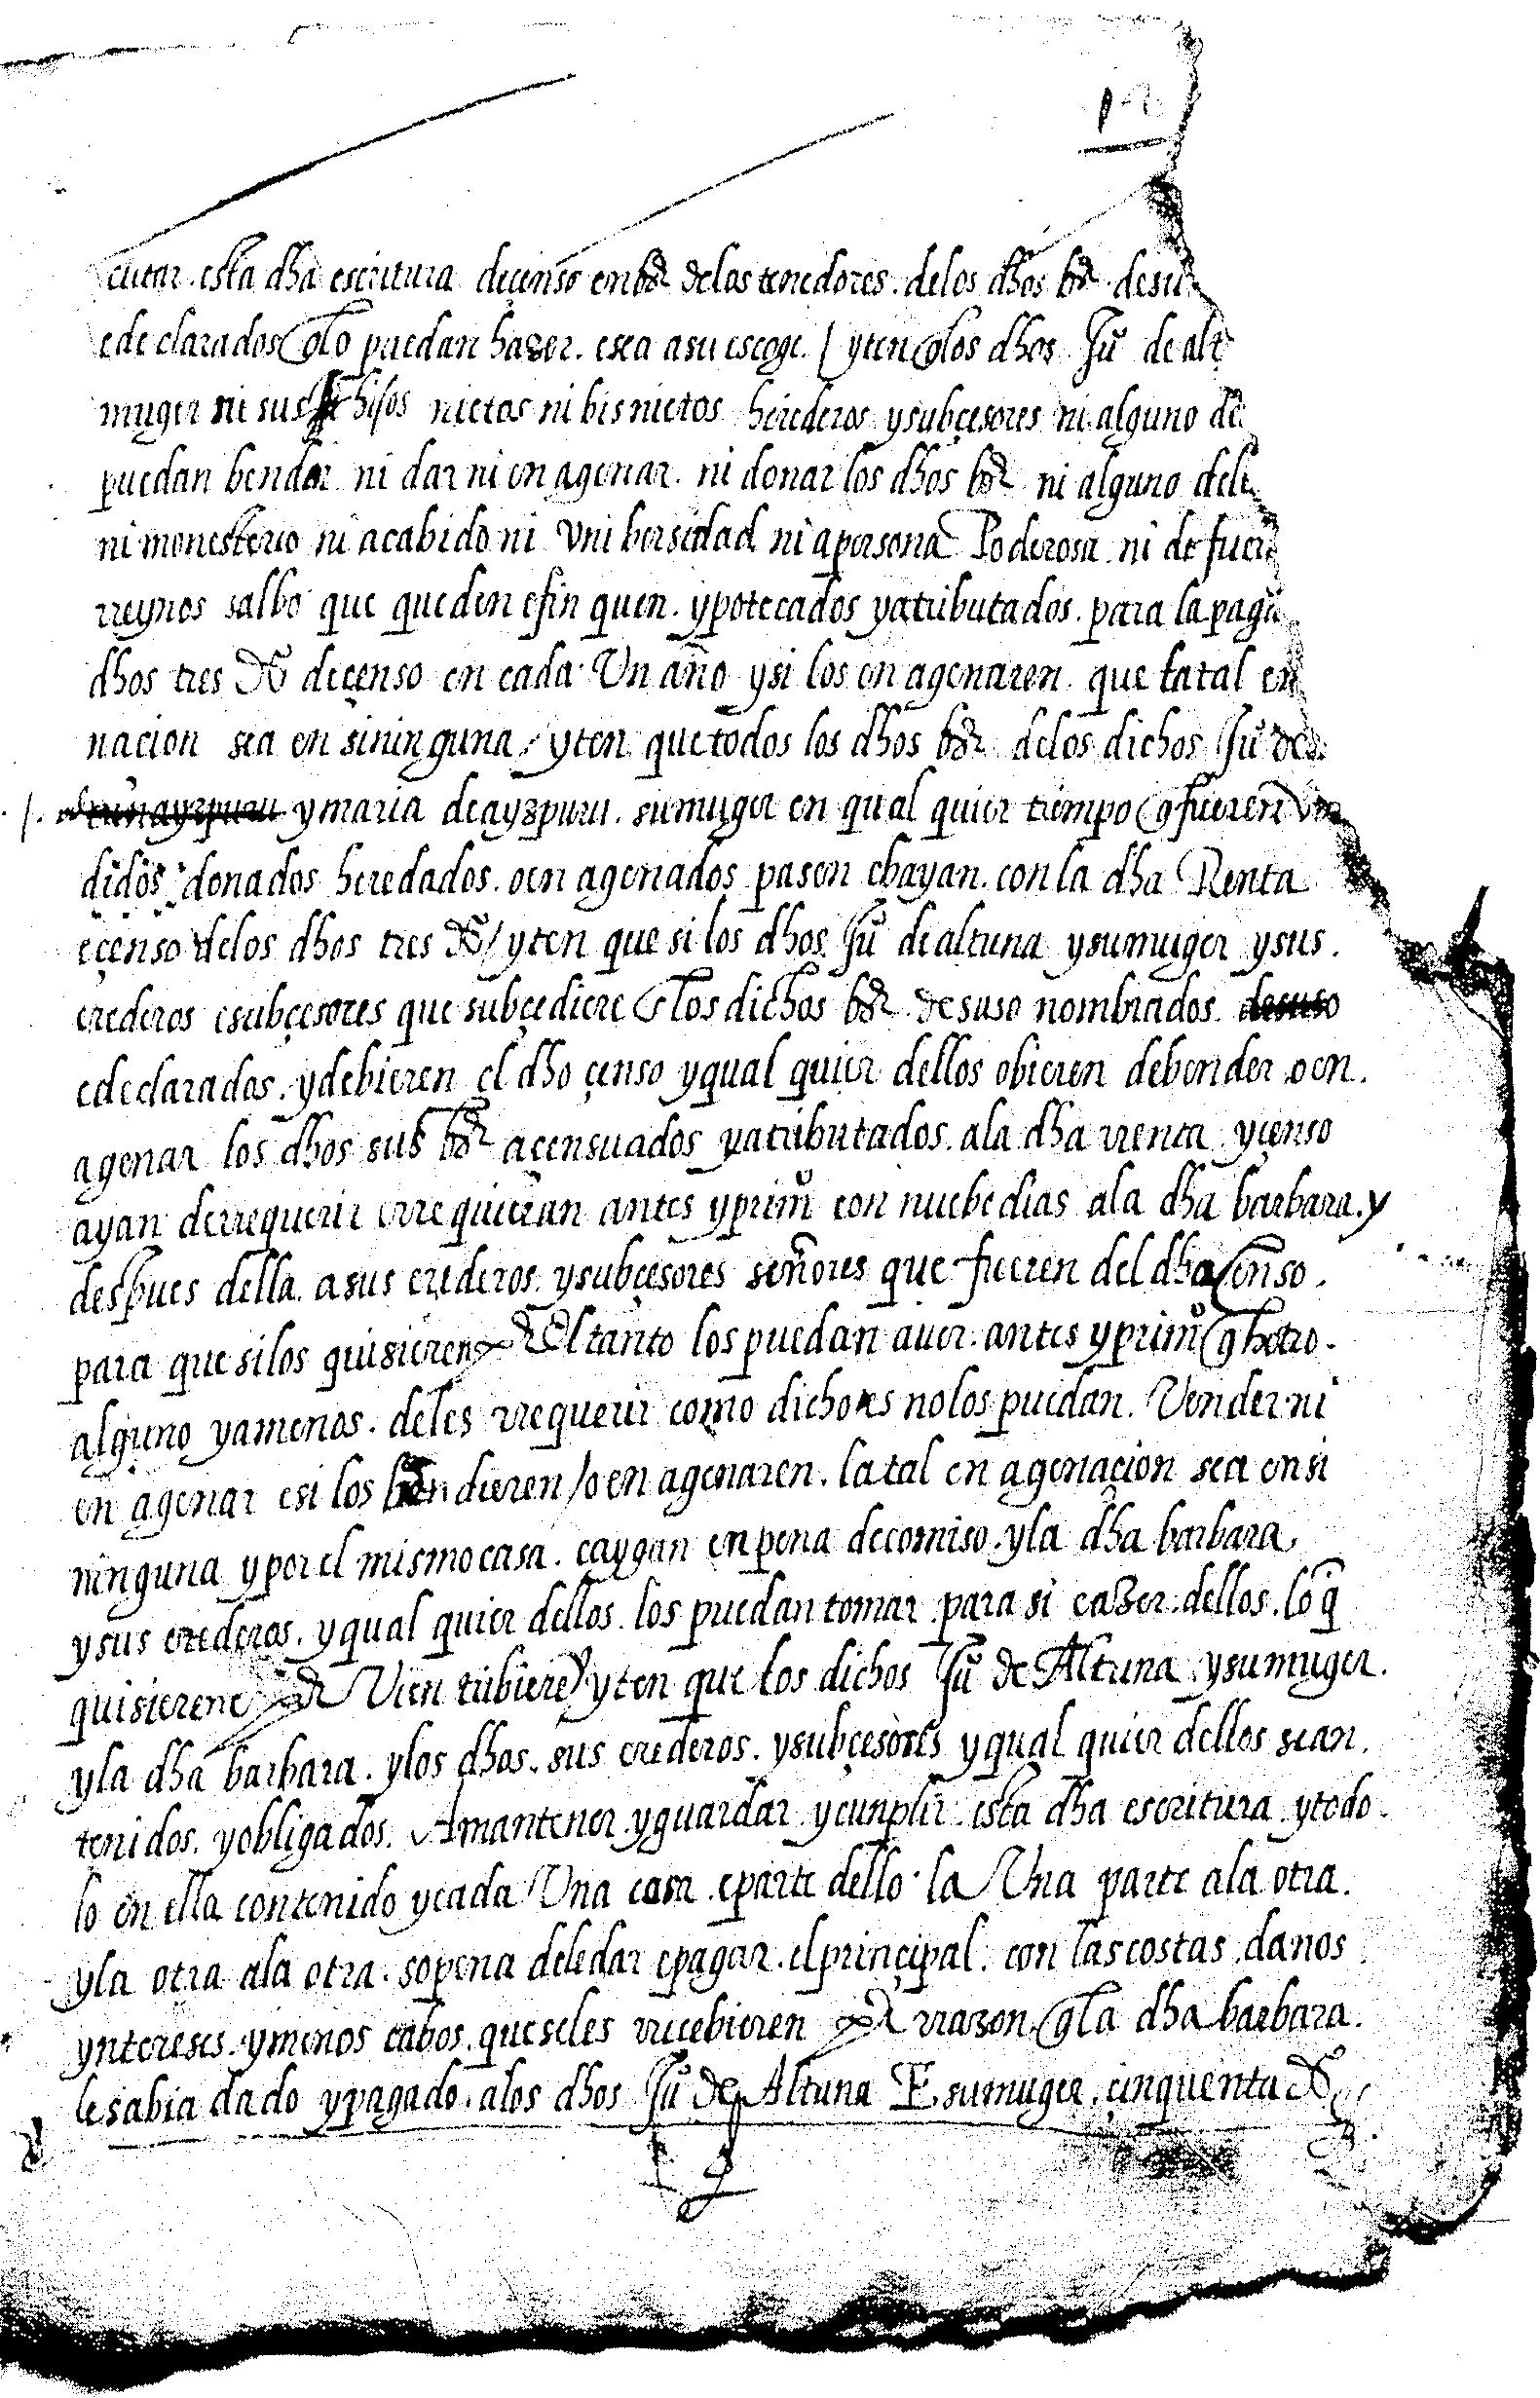 12
cutar esta dha escritura deçenso en bs delos tenedores. delos dhos bs. desu
e declarados qlo puedan hazer. esea asu escoge. / yten qlos dhos Juo de alt
muger ni sus hijos nietos ni bisnietos herederos ysubçesores ni alguno de
puedan bender ni dar ni en agenar. ni donar los dhos bs ni alguno dell
ni monesterio ni acabido ni Vnibersidad ni apersona Poderosa ni de fuera
rreynos salbo que queden efinquen. ypotecados yatributados. para la paga
dhos tres ds deçenso en cada Un año ysi los en agenaren. que la tal en
nacion sea en sininguna / yten que todos los dhos bs delos dichos Juo de
ymaria deayzpuru. sumuger en qual quier tiempo q fueren
didos donados heredados. oen agenados pasen ebayan. con la dha Renta
eçenso delos dhos tres ds / yten que si los dhos Juo dealtuna ysumuger ysus.
erederos esubçesores que subçediere los dichos bs desuso nombrados. desuso
edeclarados. ydebieren el dho çenso yqual quier dellos obieren debender oen.
agenar los dhos sus bs açensuados yatributados. ala dha rrenta yçenso
ayan derrequerir errequieran antes yprimo con nuebe dias ala dha barbara. y
despues della. asus erederos. ysubçesores señores que fueren del dho çenso.
para que silos quisieren por El tanto los puedan auer. antes yprimo q hotro.
alguno yamenos. deles rrequerir como dicho es nolos puedan. Vender ni
en agenar esi los bendieren / o en agenaren. la tal en agenaçion sea ensi
ninguna ypor el mismo casa. caygan en pena decomiso. yla dha barbara.
ysus erederos. yqual quier dellos. los puedan tomar para si eazer. dellos. lo q
quisieren e por Vien tubiere / yten que los dichos Juo de Altuna ysumuger.
yla dha barbara. ylos dhos. sus erederos. ysubçesores yqual quier dellos sean.
tenidos. yobligados. Amantener yguardar ycunplir esta dha escritura ytodo.
lo en ella contenido ycada Una cosa eparte dello la Una parte ala otra.
yla otra ala otra. sopena deledar epagar. elprinçipal. con las costas danos
ynterese̶s. ymenos cabos. queseles rrecebieren por rrazon qla dha barbara.
lesabia dado ypagado. alos dhos Juo de Altuna E sumuger. çinquenta ds